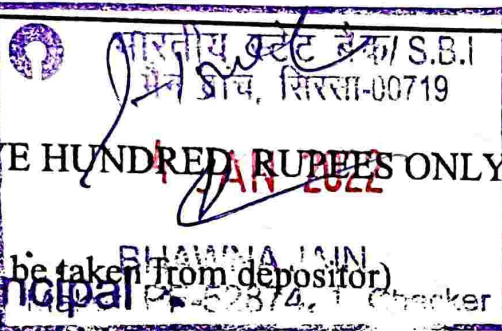 भारतीय स्टेट बैंक/ S.B.I
मेन ब्रांच, सिरसा-00719
E HUNDRED RUPEES ONLY
JAN 2022
BHAWNA JAIN
be taken from depositor)
ncipal
Checker